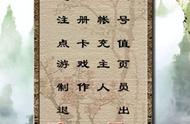 注册帐号
点卡充值
游戏主页
制作人员
退出